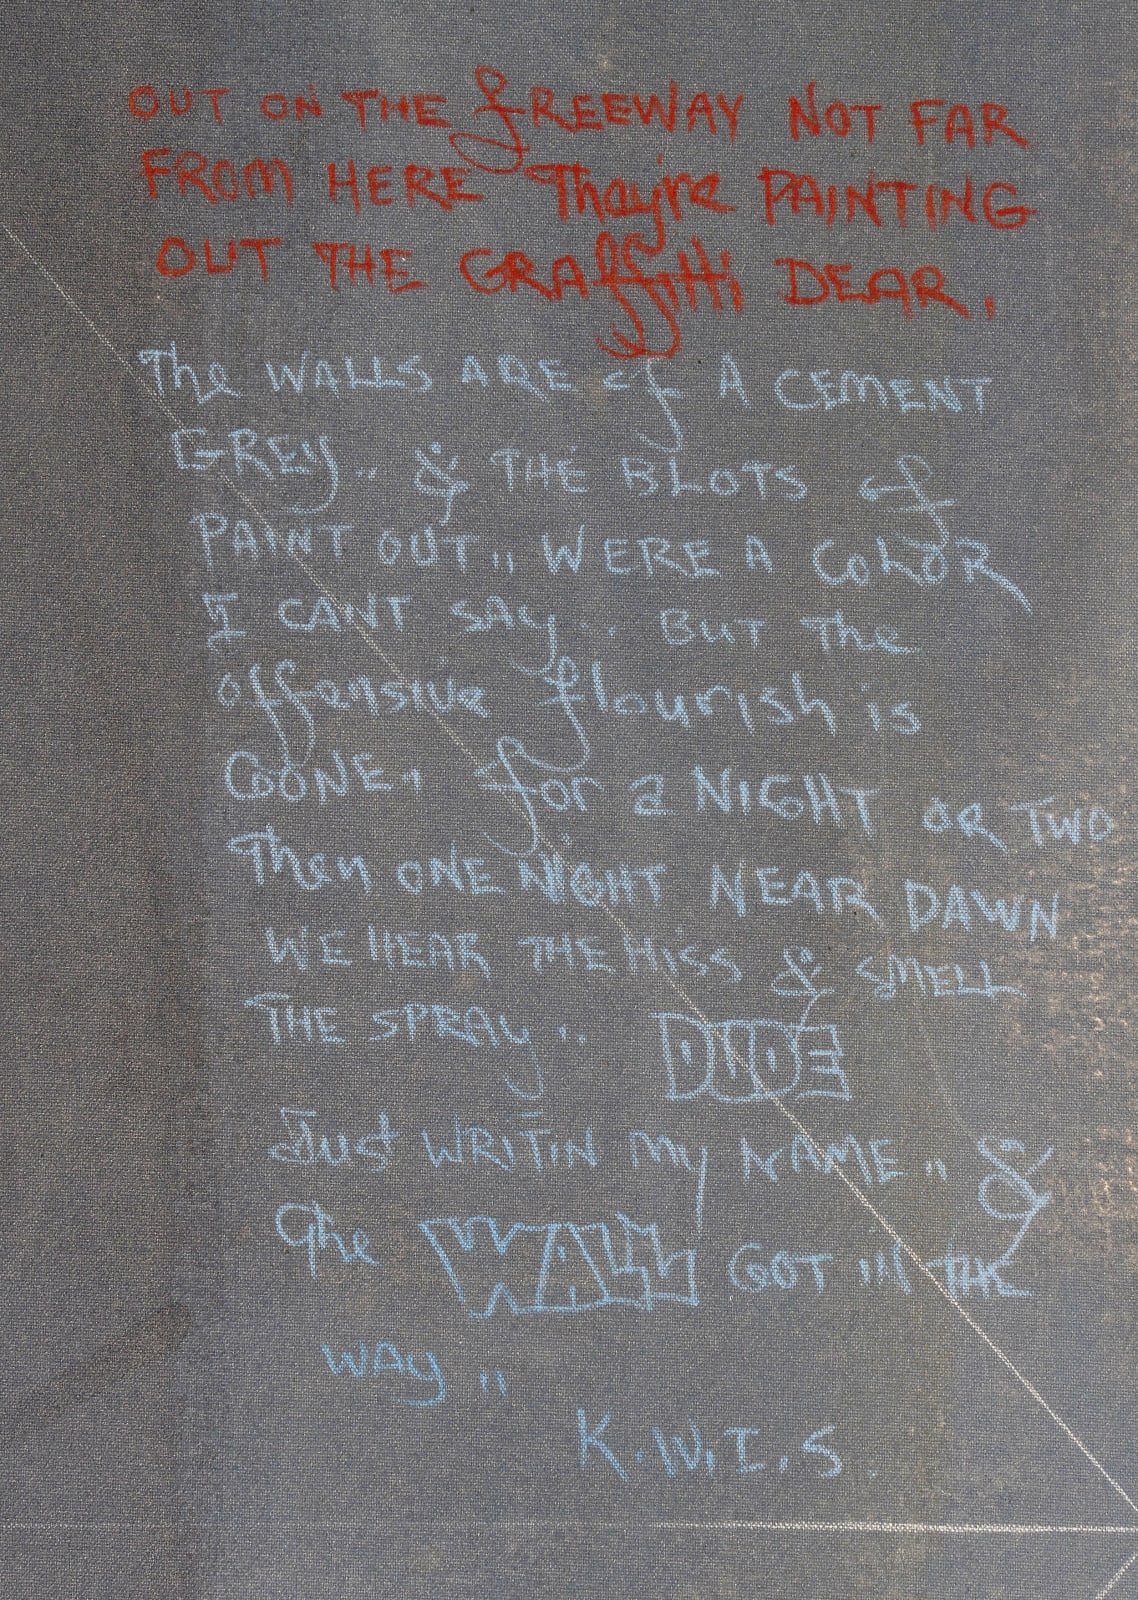 OUT ON THE fREEWAY NOT FAR
FROM HERE They're PAINTING
OUT THE GRAffitti DEAR,
The WALLS ARE of A CEMENT
GREy.. & THE BLOTS of
PAINT OUT,, WERE A COLOR
I CANT SAy.. BUT The
offensive flourish is
GONE, for a NIGHT OR TWO
Then ONE NIGHT NEAR DAWN
WE HEAR THE HISS & SMELL
THE SPRAy.. DUDE
Just WRITIN My NAME,, &
The WALL GOT IN THE
WAy,,
K.W.I.S.